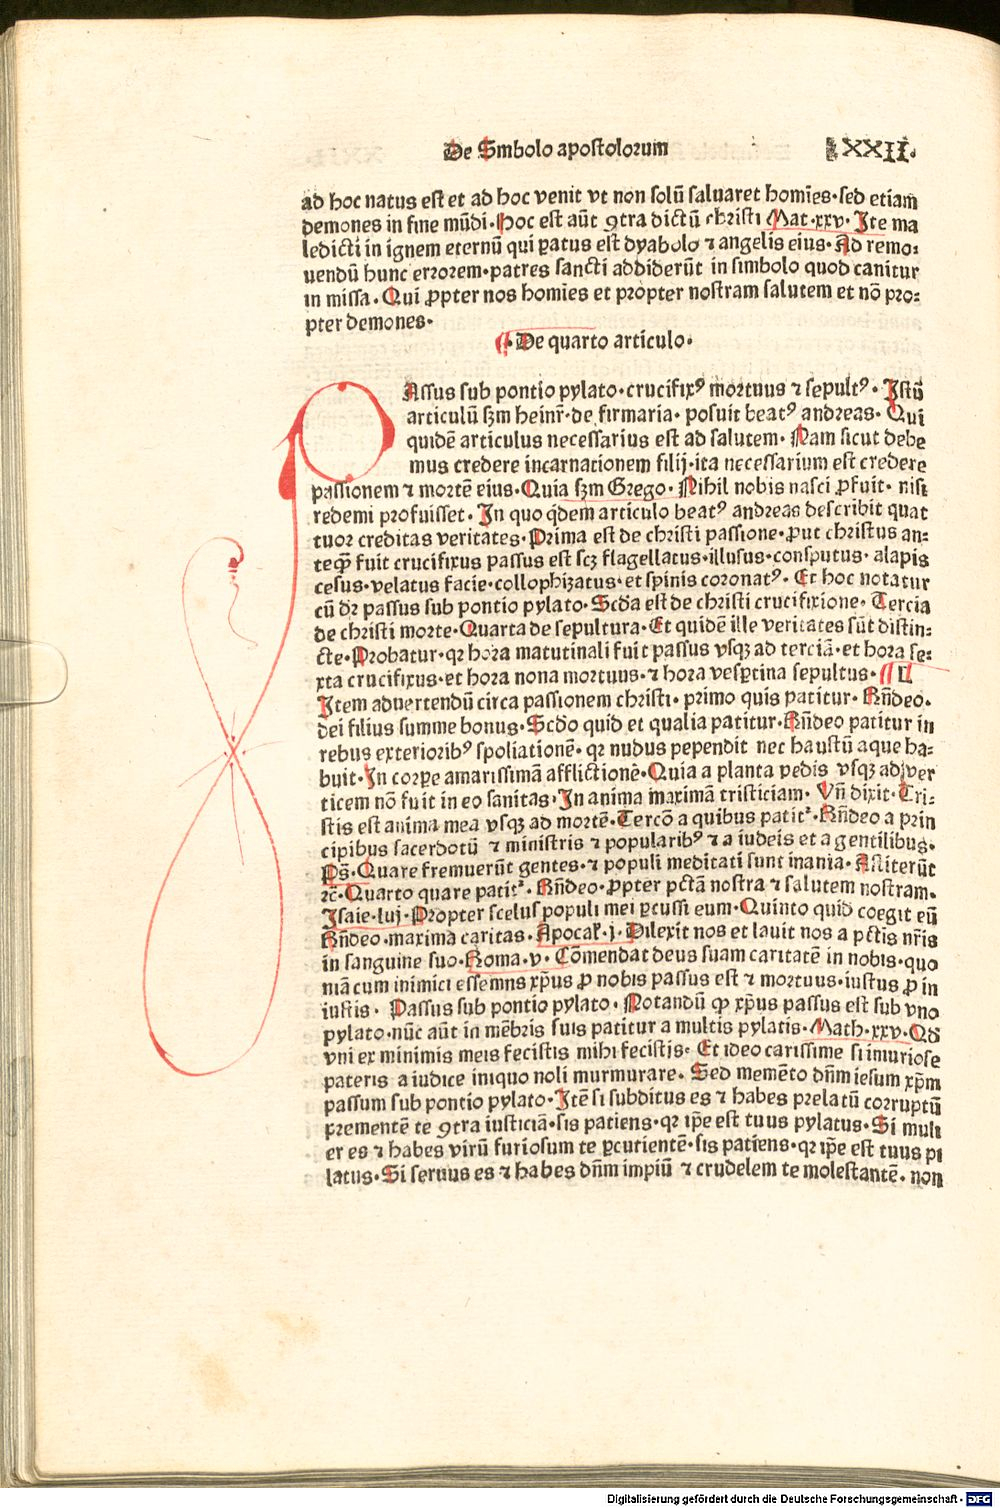 De Simbolo apostolorum LXXII.
ad hoc natus est et ad hoc venit vt non solū saluaret homīes·sed etiam
demones in fine mūdi·Hoc est aūt ꝯtra dictū christi Mat·xxv·Ite ma
ledicti in ignem eternū qui ꝑatus est dyabolo ⁊ angelis eius·Ad remo⸗
uendū hunc errorem·patres sancti addiderūt in simbolo quod canitur
in missa·Qui ꝓpter nos homīes et propter nostram salutem et nō pro⸗
pter demones·
¶·De quarto articulo·
PAssus sub pontio pylato·crucifixꝰ mortuus ⁊ sepultꝰ·Istū
articulū ẜm heinr̄·de firmaria·posuit beatꝰ andreas·Qui
quidē articulus necessarius est ad salutem·Nam sicut debe
mus credere incarnacionem filij·ita necessarium est credere
passionem ⁊ mortē eius·Quia ẜm Grego·Nihil nobis nasci ꝓfuit·nisi
redemi profuisset·In quo q̇dem articulo beatꝰ andreas describit quat
tuor creditas veritates·Prima est de christi passione·ꝓut christus an⸗
teꝙ̄ fuit crucifixus passus est scꝫ flagellatus·illusus·consputus·alapis
cesus·velatus facie·collophizatus·et spinis coronatꝰ·Et hoc notatur
cū dr̄ passus sub pontio pylato·Scd̄a est de christi crucifixione·Tercia
de christi morte·Quarta de sepultura·Et quidē ille veritates sūt distin⸗
cte·Probatur·qꝛ hora matutinali fuit passus vsqꝫ ad terciā·et hora se⸗
xta crucifixus·et hora nona mortuus·⁊ hora vesꝑtina sepultus·¶
Item aduertendū circa passionem christi·primo quis patitur·Rn̄deo·
dei filius summe bonus·Scd̄o quid et qualia patitur·Rn̄deo patitur in
rebus exterioribꝰ spoliationē·qꝛ nudus pependit nec haustū aque ha⸗
buit·In corꝑe amarissimā afflictionē·Quia a planta pedis vsqꝫ ad ver
ticem nō fuit in eo sanitas·In anima maximā tristiciam·Vn̄ dixit·Tri⸗
stis est anima mea vsqꝫ ad mortē·Tercō a quibus patit᷑·Rn̄deo a prin
cipibus sacerdotū ⁊ ministris ⁊ popularibꝰ ⁊ a iudeis et a gentilibus·
Ps̄·Quare fremuerūt gentes·⁊ populi meditati sunt inania·Astiterūt
⁊c̄·Quarto quare patit᷑·Rn̄deo·ꝓpter pctā nostra ⁊ salutem nostram·
Isaie·luj·Propter scelus populi mei ꝑcussi eum·Quinto quid coegit eū
Rn̄deo·maxima caritas·Apocal̄·j·Dilexit nos et lauit nos a pctīs nr̄is
in sanguine suo·Roma·v·Cōmendat deus suam caritatē in nobis·quo
niā cum inimici essemus xp̄us ꝓ nobis passus est ⁊ mortuus·iustus ꝓ in
iustis· Passus sub pontio pylato·Notandū ꝙ xp̄us passus est sub vno
pylato·nūc aūt in mēbris suis patitur a multis pylatis·Math·xxv·Qd̄
vni ex minimis meis fecistis mihi fecistis·Et ideo carissime si iniuriose
pateris a iudice iniquo noli murmurare·Sed memēto dn̄m iesum xp̄m
passum sub pontio pylato·Itē si subditus es ⁊ habes prelatū corruptū
prementē te ꝯtra iusticiā·sis patiens·qꝛ ip̄e est tuus pylatus·Si muli
er es ⁊ habes virū furiosum te ꝑcutientē·sis patiens·qꝛ ip̄e est tuus pi
latus·Si seruus es ⁊ habes dn̄m impiū ⁊ crudelem te molestantē·non
Digitalisierung gefördert durch die Deutsche Forschungsgemeinschaft - DFG